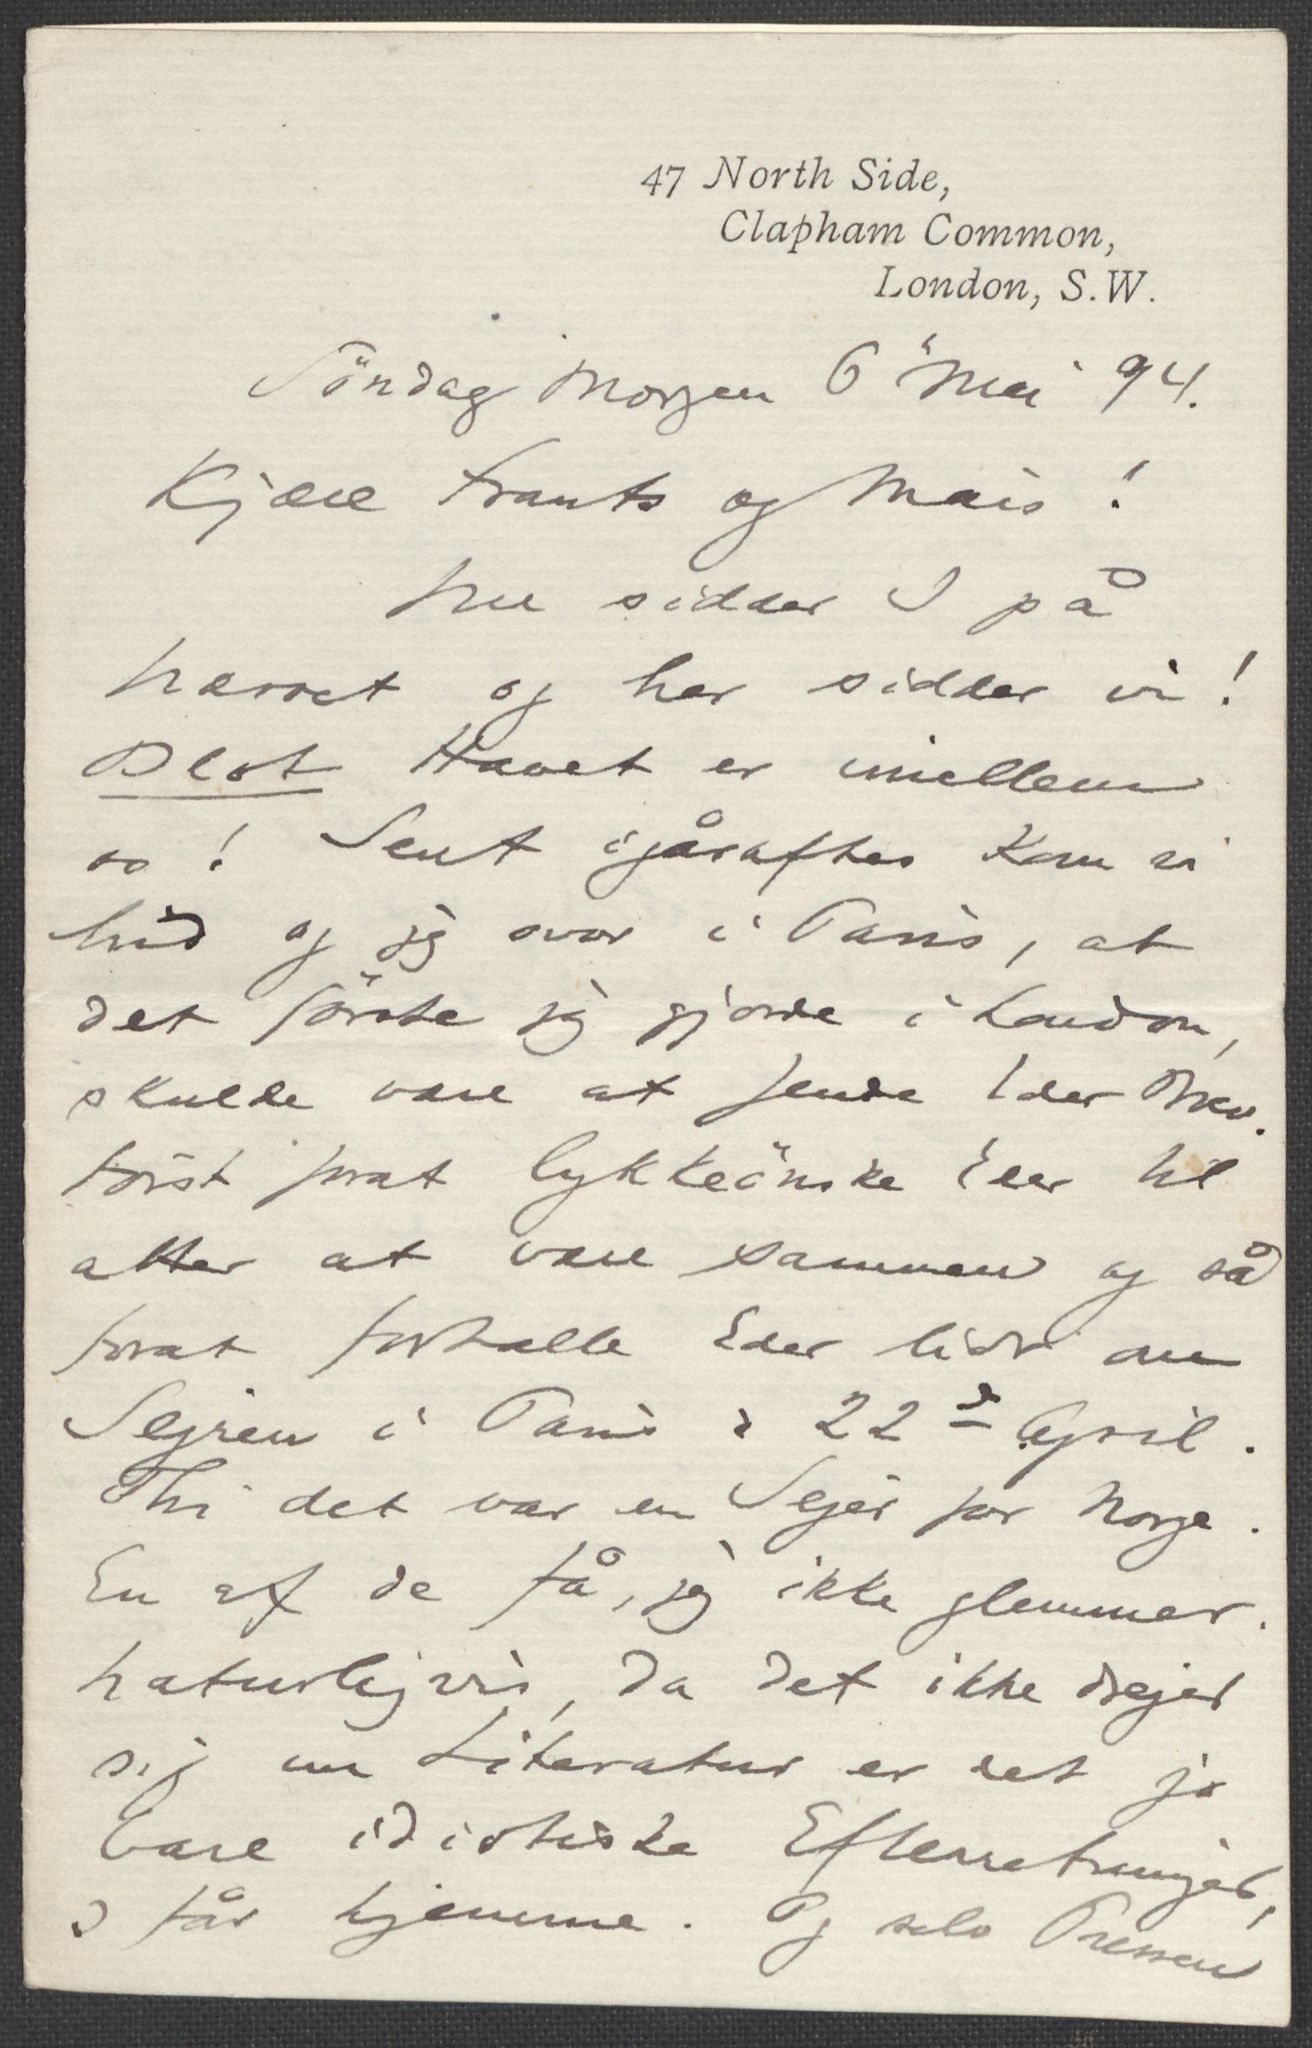 47 North Side,
Clapham Common,
London, S.W.
Söndag Morgen 6' Mai 94.
Kjære Frants og Mais!
Nu sidder I på
Næsset og her sidder vi!
Blot Havet er imellem
os! Sent igåraftes kom vi
hid og jeg svor i Paris, at
det förste jeg gjorde i London,
skulde være at sende Eder Brev.
Först forat lykkeönske Eder til
atter at være sammen og så
forat fortælle Eder lidt om
Sejren i Paris d 22d April.
Thi det var en Sejer for Norge.
En af de få, jeg ikke glemmer.
Naturligvis, da det ikke drejer
sig um Literatur er det jo
bare idiotiske Efterretninger,
I får hjemme. Og selv Pressen